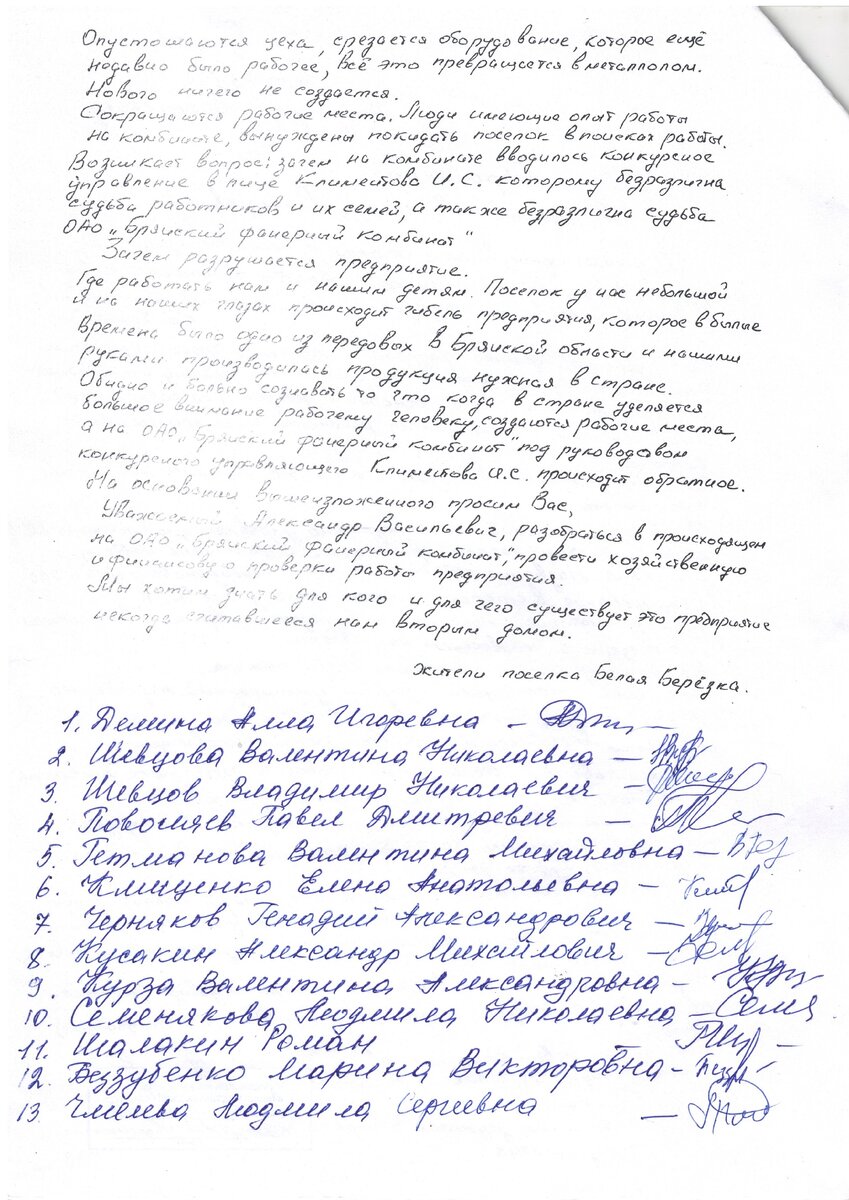 Опустошаются цеха, срезается оборудование, которое ещё
недавно было рабочее, всё это превращается в металлолом.
Нового ничего не создается.
Сокращаются рабочие места. Люди имеющие опыт работы
на комбинате, вынуждены покидать поселок в поисках работы.
Возникает вопрос: зачем на комбинате вводилось конкурсное
управление в лице Климентова И.С. которому безразлична
судьба работников и их семей, а также безразлична судьба
ОАО „Брянский фанерный комбинат"
Зачем разрушается предприятие.
Где работать нам и нашим детям. Поселок у нас небольшой
и на наших глазах происходит гибель предприятия, которое в былые
времена было одно из передовых в Брянской области и нашими
руками производилась продукция нужная в стране.
Обидно и больно сознавать то что когда в стране уделяется
большое внимание рабочему человеку, создаются рабочие места,
а на ОАО „Брянский фанерный комбинат" под руководством
конкурсного управляющего Климентова И.С. происходит обратное.
На основании вышеизложенного просим Вас,
Уважаемый Александр Васильевич, разобраться в происходящем
на ОАО „Брянский фанерный комбинат", провести хозяйственную
и финансовую проверки работы предприятия.
Мы хотим знать для кого и для чего существует это предприятие
некогда считавшееся нам вторым домом.
Жители поселка Белая Берёзка.
1. Демина Алла Игоревна –
2. Шевцова Валентина Николаевна –
3. Шевцов Владимир Николаевич –
4. Павел Дмитревич –
5. Гетманова Валентина Михайловна –
6. Климценко Елена Анатольевна –
7. Черняков Генадий Александрович –
8. Кусакин Александр Михайлович –
9. Курза Валентина Александровна –
10. Семенякова Людмила Николаевна – Семя
11. Шалакин Роман
12. Беззубенко Марина Викторовна –
13 Людмила Сергеевна –